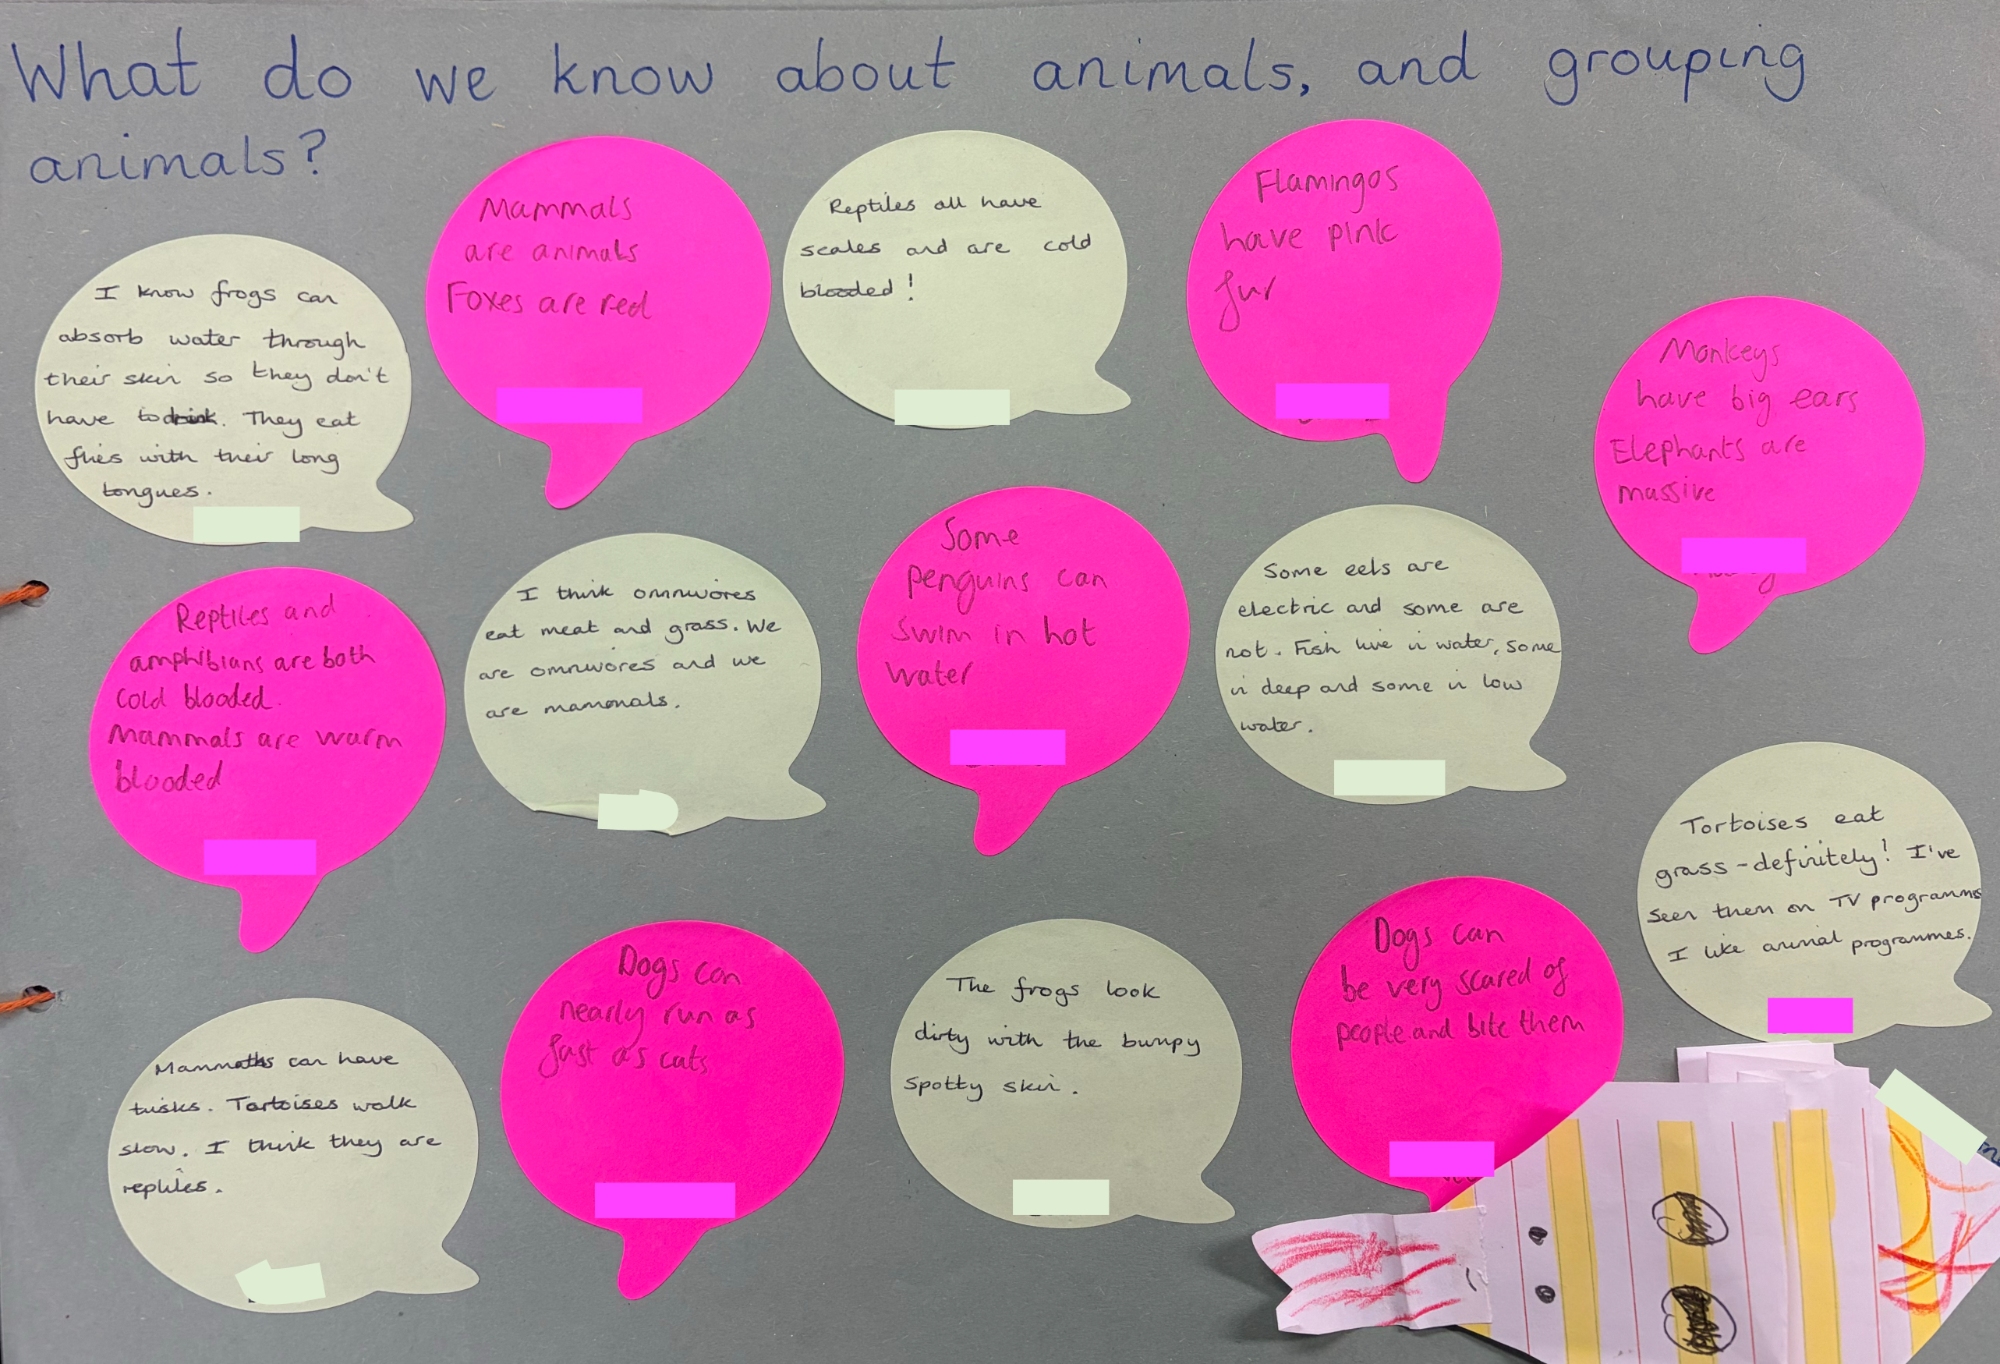 What do we know about animals, and grouping
animals?
I know frogs can
absorb water through
their skin so they don't
have to drink. They eat
flies with their long
tongues.
Mammals
are animals
Foxes are red
Reptiles all have
scales and are cold
blooded!
Flamingos
have pink
fur
Monkeys
have big ears
Elephants are
massive
Reptiles and
amphibians are both
cold blooded.
Mammals are warm
blooded
I think omnivores
eat meat and grass. We
are omnivores and we
are mammals.
Some
penguins can
swim in hot
water
Some eels are
electric and some are
not. Fish live in water, some
in deep and some in low
water.
Tortoises eat
grass - definitely! I've
seen them on TV programmes
I like animal programmes.
Mammoths can have
tusks. Tortoises walk
slow. I think they are
reptiles.
Dogs can
nearly run as
fast as cats
The frogs look
dirty with the bumpy
spotty skin.
Dogs can
be very scared of
people and bite them